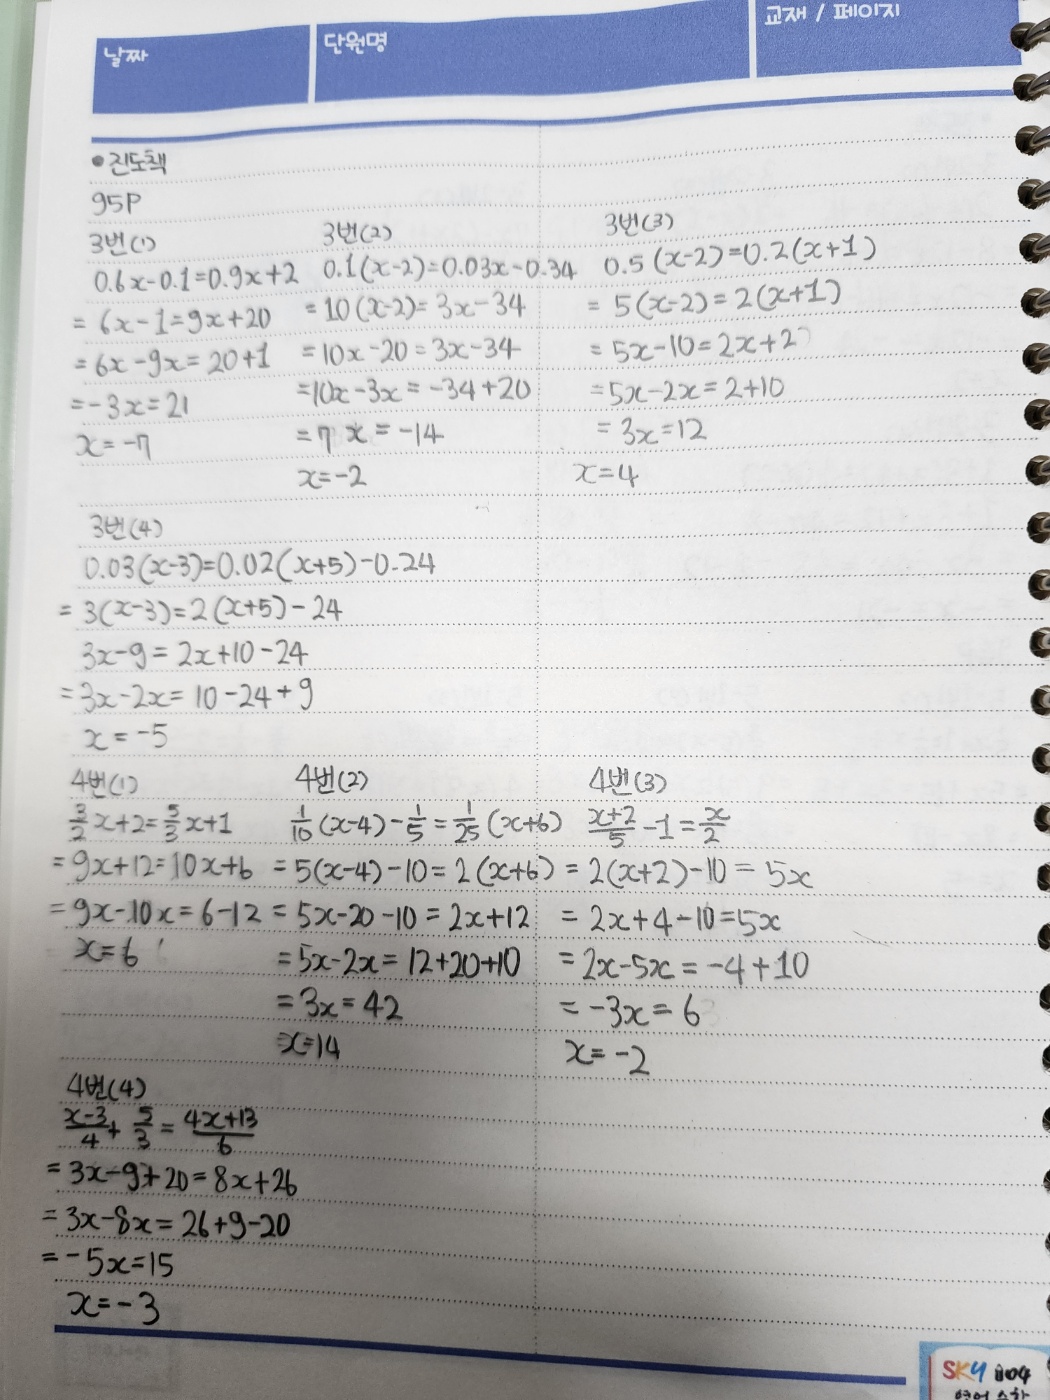 날짜
단원명
교재 / 페이지
• 진도책
95P
3번(1)
0.6x-0.1=0.9x+2
= 6x-1=9x+20
= 6x-9x=20+1
= -3x=21
x=-7
3번(2)
0.1(x-2)=0.03x-0.34
= 10(x-2)=3x-34
= 10x-20=3x-34
=10x-3x=-34+20
= 7x=-14
x=-2
3번(3)
0.5(x-2)=0.2(x+1)
= 5(x-2)=2(x+1)
= 5x-10=2x+2
=5x-2x=2+10
= 3x=12
x=4
3번(4)
0.03(x-3)=0.02(x+5)-0.24
= 3(x-3)=2(x+5)-24
3x-9=2x+10-24
=3x-2x=10-24+9
x=-5
4번(1)
3/2x+2=5/3x+1
= 9x+12=10x+6
= 9x-10x=6-12
x=6
4번(2)
1/10(x-4)-1/5=1/25(x+6)
= 5(x-4)-10=2(x+6)
= 5x-20-10=2x+12
= 5x-2x=12+20+10
= 3x=42
x=14
4번(3)
x+2/5-1=x/2
= 2(x+2)-10=5x
= 2x+4-10=5x
= 2x-5x=-4+10
= -3x=6
x=-2
4번(4)
x-3/4+5/3=4x+13/6
= 3x-9+20=8x+26
= 3x-8x=26+9-20
= -5x=15
x=-3
SKY
영어 수학